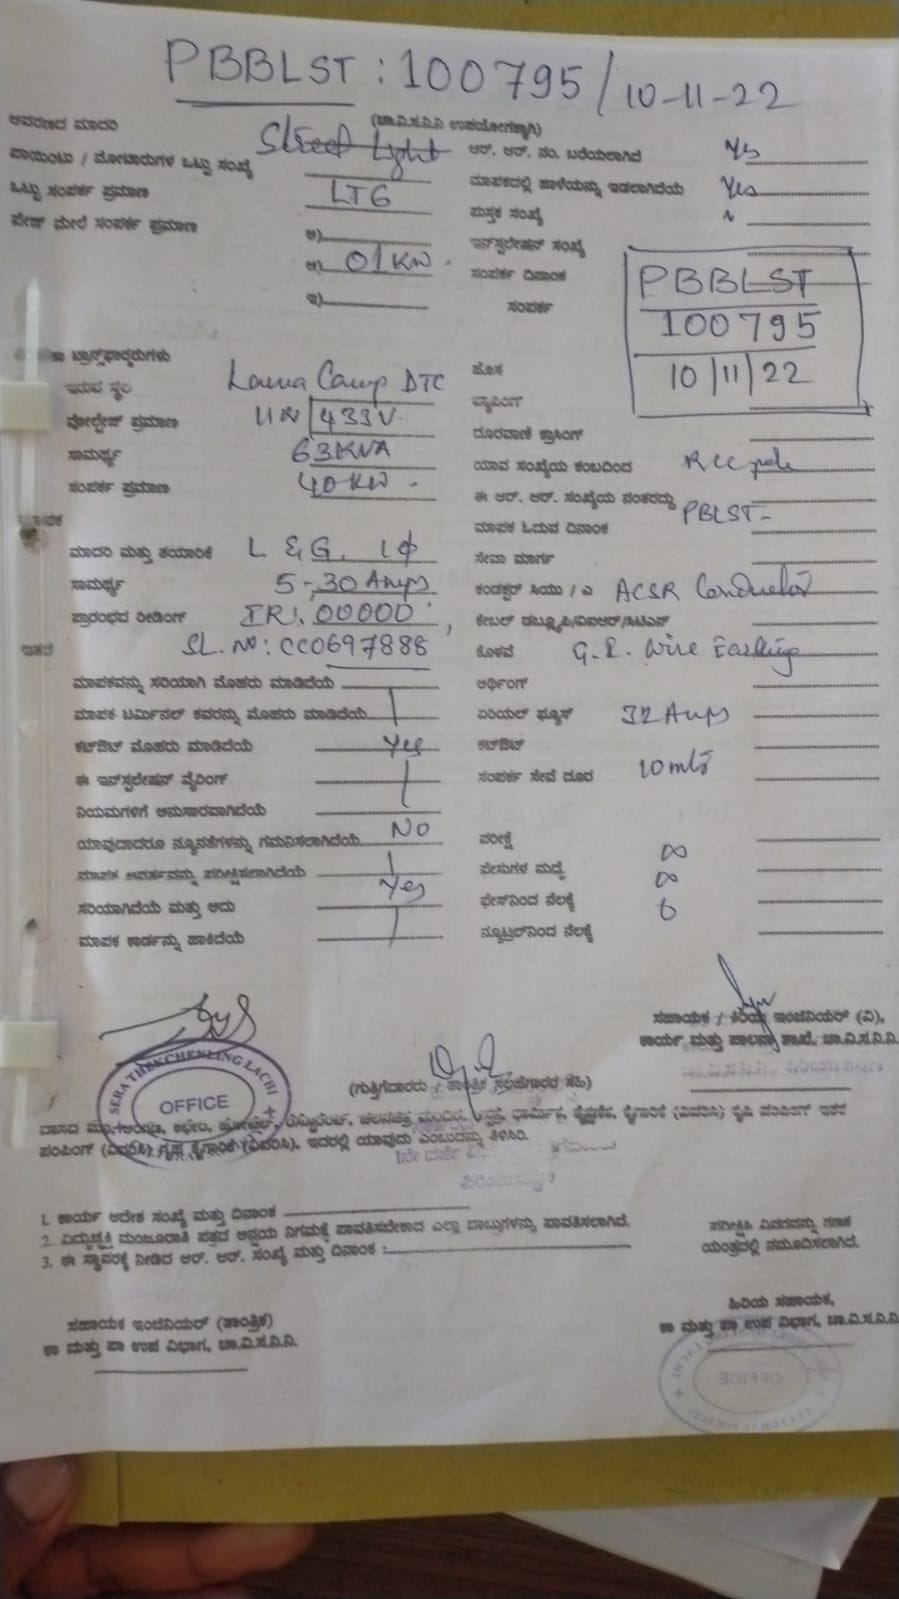 PBBLST : 100795 / 10-11-22
(ಚಾ.ವಿ.ಸ.ನಿ.ನಿ ಉಪಯೋಗಕ್ಕಾಗಿ)
ಆವರಣದ ಮಾದರಿ Street Light
ಪಾಯಿಂಟು / ಮೋಟಾರುಗಳ ಒಟ್ಟು ಸಂಖ್ಯೆ
ಒಟ್ಟು ಸಂಪರ್ಕ ಪ್ರಮಾಣ LT6
ಪೇಜ್ ಮೇಲೆ ಸಂಪರ್ಕ ಪ್ರಮಾಣ ಅ)
ಆ) 01 KW.
ಇ)
ಟ್ರಾನ್ಸ್‌ಫಾರ್ಮರುಗಳು
ಇರುವ ಸ್ಥಳ Lama Camp DTC
ವೋಲ್ಟೇಜ್ ಪ್ರಮಾಣ 433V
ಸಾಮರ್ಥ್ಯ 63KVA
ಸಂಪರ್ಕ ಪ್ರಮಾಣ 40KW.
ಮಾದರಿ ಮತ್ತು ತಯಾರಿಕೆ L & G. 1φ
ಸಾಮರ್ಥ್ಯ 5-30 Amps
ಪ್ರಾರಂಭದ ರೀಡಿಂಗ್ IR: 00000
ಇತರೆ SL. NO: CC0697888
ಮಾಪಕವನ್ನು ಸರಿಯಾಗಿ ಮೊಹರು ಮಾಡಿದೆಯೆ
ಮಾಪಕ ಟರ್ಮಿನಲ್ ಕವರನ್ನು ಮೊಹರು ಮಾಡಿದೆಯೆ
ಕಟ್‌ಔಟ್ ಮೊಹರು ಮಾಡಿದೆಯೆ Yes
ಈ ಇನ್‌ಸ್ಟಲೇಷನ್ ವೈರಿಂಗ್
ನಿಯಮಗಳಿಗೆ ಅನುಸಾರವಾಗಿದೆಯೆ
ಯಾವುದಾದರೂ ನ್ಯೂನತೆಗಳನ್ನು ಗಮನಿಸಲಾಗಿದೆಯೆ No
ಮಾಪಕ ಪರೀಕ್ಷಿಸಲಾಗಿದೆಯೆ
ಸರಿಯಾಗಿದೆಯೆ ಮತ್ತು ಅದು Yes
ಮಾಪಕ ಕಾರ್ಡನ್ನು ಹಾಕಿದೆಯೆ
ಆರ್. ಆರ್. ನಂ. ಬರೆಯಲಾಗಿದೆ Yes
ಮಾಪಕದಲ್ಲಿ ಹಾಳೆಯನ್ನು ಇಡಲಾಗಿದೆಯೆ Yes
ಪುಸ್ತಕ ಸಂಖ್ಯೆ
ಇನ್‌ಸ್ಟಲೇಷನ್ ಸಂಖ್ಯೆ
ಸಂಪರ್ಕ ದಿನಾಂಕ
ಸಂಪರ್ಕ
PBBLST
100795
10/11/22
ಹೊಸ
ಮ್ಯಾಪಿಂಗ್
ದೂರವಾಣಿ ಕ್ರಾಸಿಂಗ್
ಯಾವ ಸಂಖ್ಯೆಯ ಕಂಬದಿಂದ RCC pole
ಈ ಆರ್. ಆರ್. ಸಂಖ್ಯೆಯ ನಂತರದ್ದು PBLST-
ಮಾಪಕ ಓದುವ ದಿನಾಂಕ
ಸೇವಾ ಮಾರ್ಗ
ಕಂಡಕ್ಟರ್ ಸಿಯು / ಎ ACSR Conductor
ಕೇಬಲ್
ಕೊಳವೆ G.I. wire Earthing
ಅರ್ಥಿಂಗ್
ಏರಿಯಲ್ ಫ್ಯೂಸ್ 32 Amps
ಕಟ್‌ಔಟ್
ಸಂಪರ್ಕ ಸೇವೆ ದೂರ 10 mts
ಪರೀಕ್ಷೆ
ಪೇಸುಗಳ ಮಧ್ಯೆ ∞
ಫೇಸ್‌ನಿಂದ ನೆಲಕ್ಕೆ ∞
ನ್ಯೂಟ್ರಲ್‌ನಿಂದ ನೆಲಕ್ಕೆ
ಸಹಾಯಕ / ಕಿರಿಯ ಇಂಜಿನಿಯರ್ (ವಿ),
ಕಾರ್ಯ ಮತ್ತು ಪಾಲನಾ ಶಾಖೆ, ಚಾ.ವಿ.ಸ.ನಿ.ನಿ.
SERA THEKCHENLING LACHI
OFFICE
(ಗುತ್ತಿಗೆದಾರರು / ತಾಂತ್ರಿಕ ಸಲಹೆಗಾರರ ಸಹಿ)
ಪಂಪಿಂಗ್ (ವಿವರಿಸಿ) ಗೃಹ ಕೈಗಾರಿಕೆ (ವಿವರಿಸಿ), ಇದರಲ್ಲಿ ಯಾವುದು ಎಂಬುದನ್ನು ತಿಳಿಸಿರಿ.
1. ಕಾರ್ಯ ಆದೇಶ ಸಂಖ್ಯೆ ಮತ್ತು ದಿನಾಂಕ
2. ವಿದ್ಯುಚ್ಛಕ್ತಿ ಮಂಜೂರಾತಿ ಪತ್ರದ ಅನ್ವಯ ನಿಗಮಕ್ಕೆ ಪಾವತಿಸಬೇಕಾದ ಎಲ್ಲಾ ಬಾಬ್ತುಗಳನ್ನು ಪಾವತಿಸಲಾಗಿದೆ.
3. ಈ ಸ್ಥಾವರಕ್ಕೆ ನೀಡಿದ ಆರ್. ಆರ್. ಸಂಖ್ಯೆ ಮತ್ತು ದಿನಾಂಕ :
ಪರೀಕ್ಷಿಸಿ ವಿವರವನ್ನು ಗಣಕ
ಯಂತ್ರದಲ್ಲಿ ನಮೂದಿಸಲಾಗಿದೆ.
ಸಹಾಯಕ ಇಂಜಿನಿಯರ್ (ತಾಂತ್ರಿಕ)
ಕಾ ಮತ್ತು ಪಾ ಉಪ ವಿಭಾಗ, ಚಾ.ವಿ.ಸ.ನಿ.ನಿ.
ಹಿರಿಯ ಸಹಾಯಕ,
ಕಾ ಮತ್ತು ಪಾ ಉಪ ವಿಭಾಗ, ಚಾ.ವಿ.ಸ.ನಿ.ನಿ.